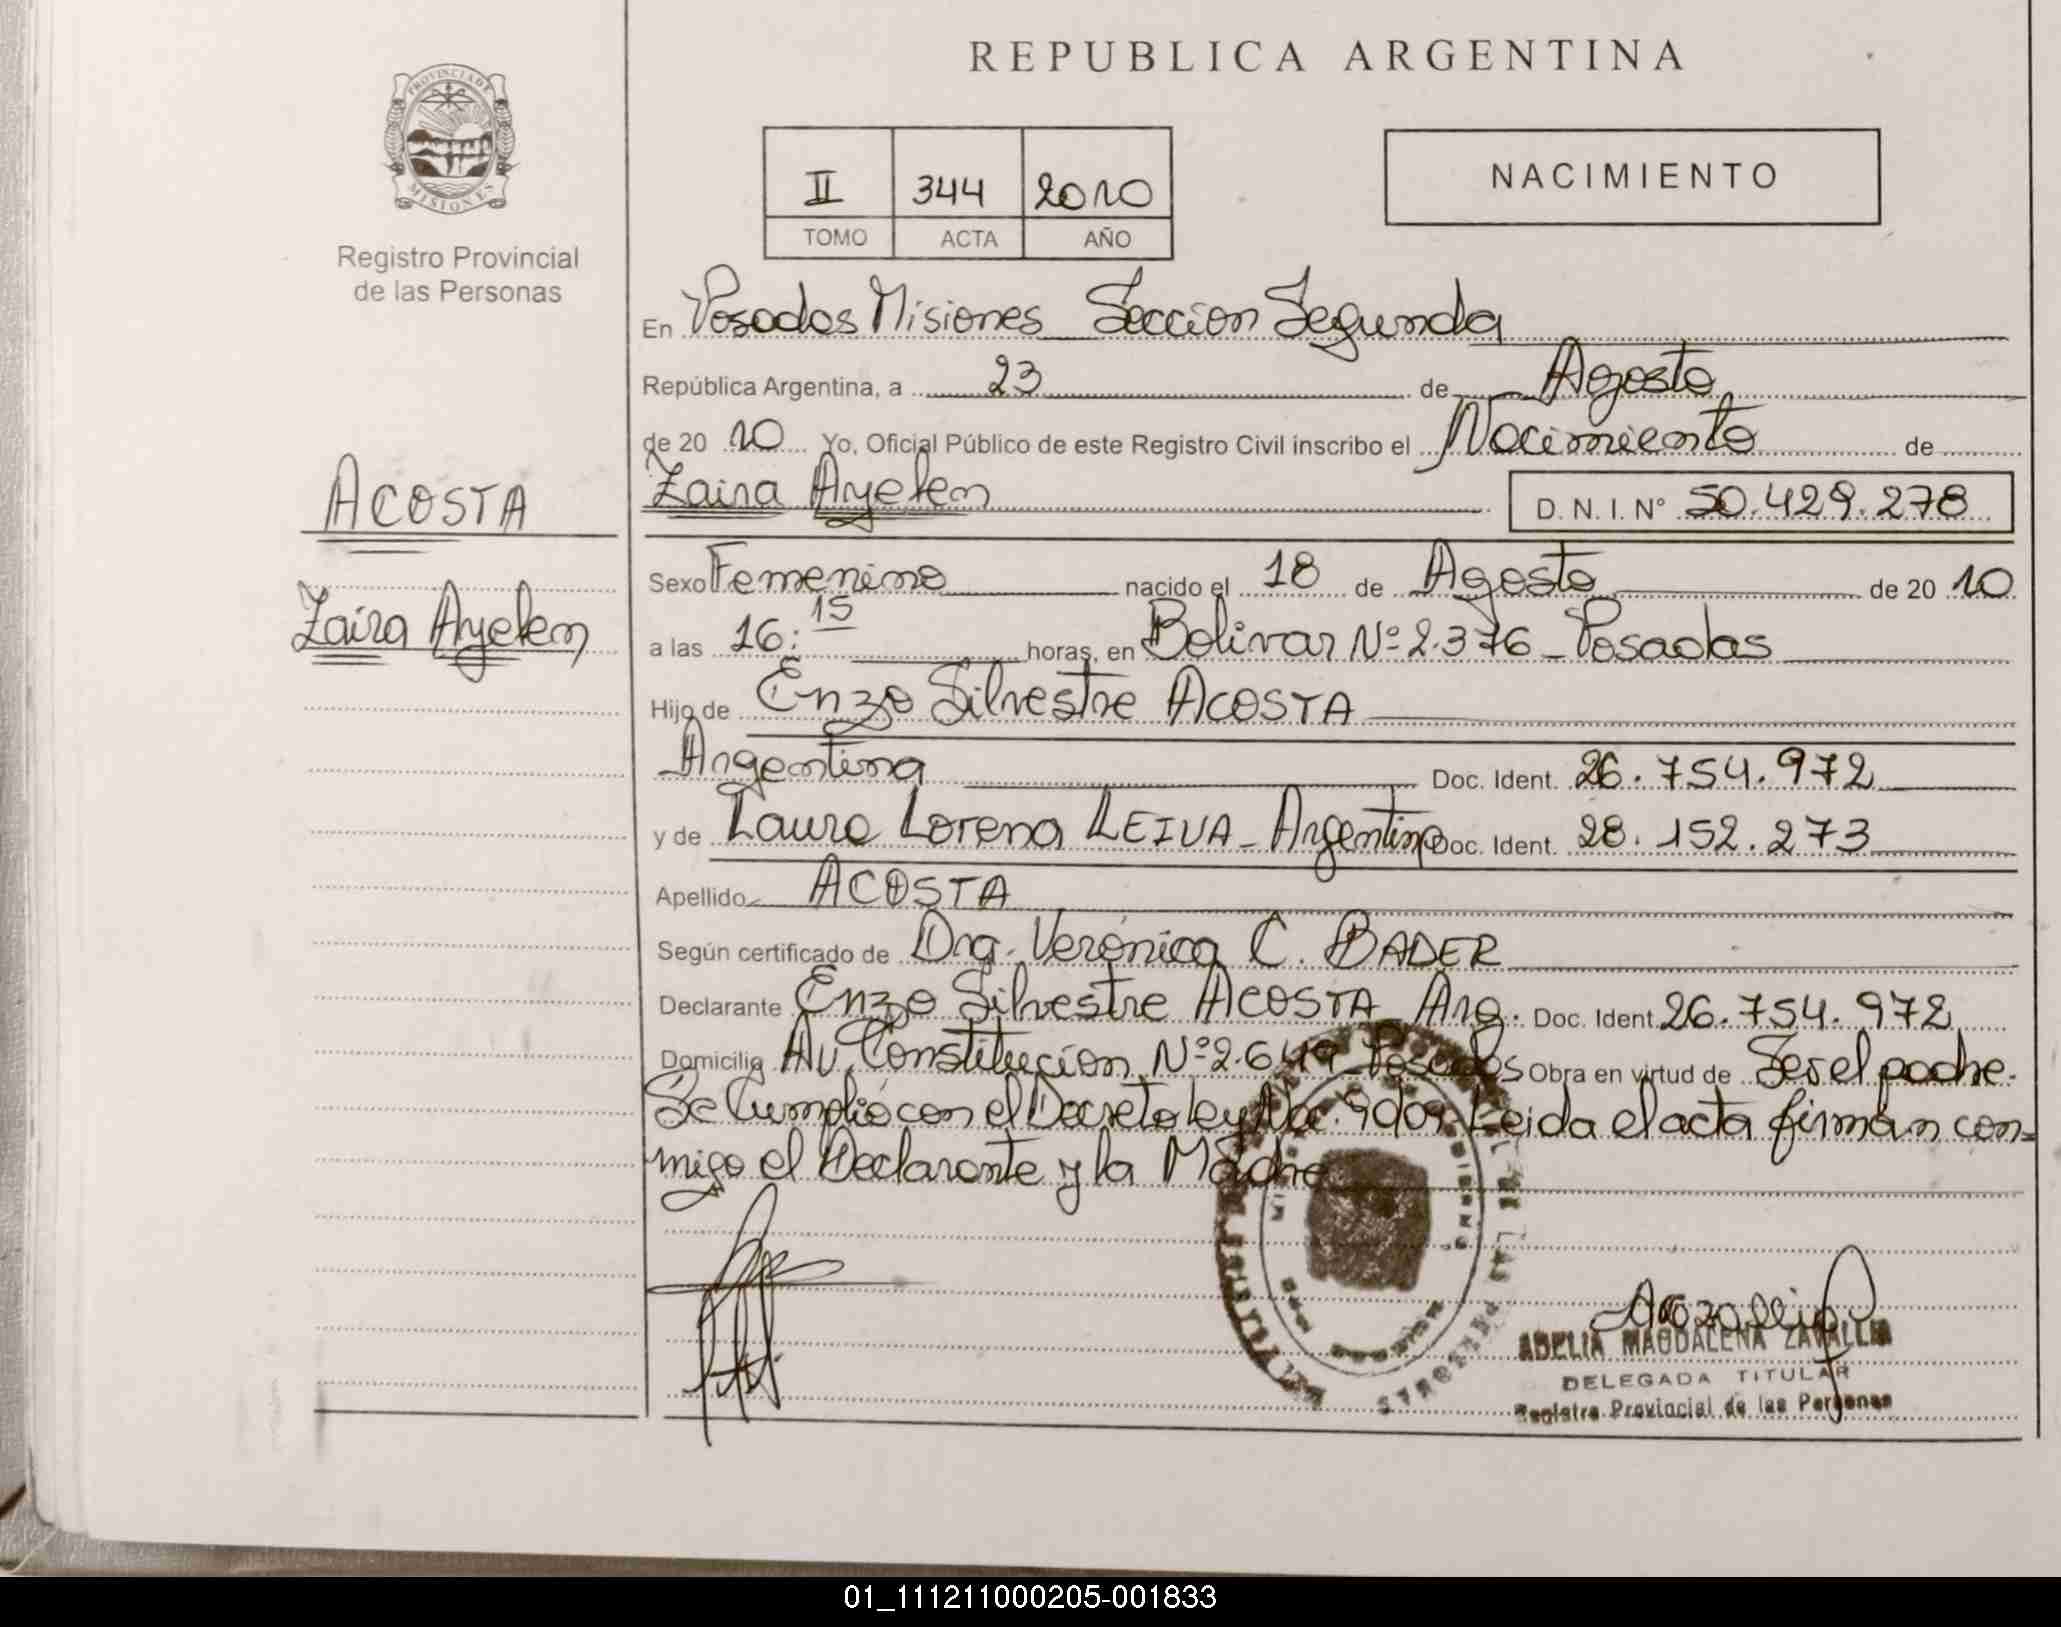 REPUBLICA ARGENTINA
PROVINCIA DE
MISIONES
Registro Provincial
de las Personas
II 344 2010
TOMO ACTA AÑO
NACIMIENTO
En Posadas Misiones Seccion Segunda
República Argentina, a 23 de Agosto
de 20 10 Yo, Oficial Público de este Registro Civil inscribo el Nacimiento de
ACOSTA
Zaira Ayelen
Zaira Ayelen D. N. I. N° 50.429.278
Sexo Femenino nacido el 18 de Agosto de 20 10
a las 16:15 horas, en Bolivar Nº 2.376 - Posadas
Hijo de Enzo Silvestre ACOSTA
Argentina Doc. Ident. 26.754.972
y de Laura Lorena LEIVA - Argentina Doc. Ident. 28.152.273
Apellido ACOSTA
Según certificado de Dra. Verónica C. BADER
Declarante Enzo Silvestre ACOSTA Arg. Doc. Ident. 26.754.972
Domicilio Av. Constitucion Nº 2.649 - Posadas Obra en virtud de Ser el padre.
Se Cumplió con el Decreto ley No. 9009. Leida el acta firman con=
migo el Declarante y la Madre
ADELIA MAGDALENA ZAVALLIA
DELEGADA TITULAR
Registro Provincial de las Personas
01_111211000205-001833